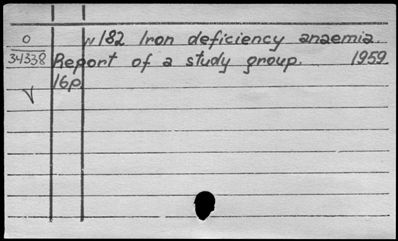 0 N182 Iron deficiency anaemia.
34338 Report of a study group. 1959
16p